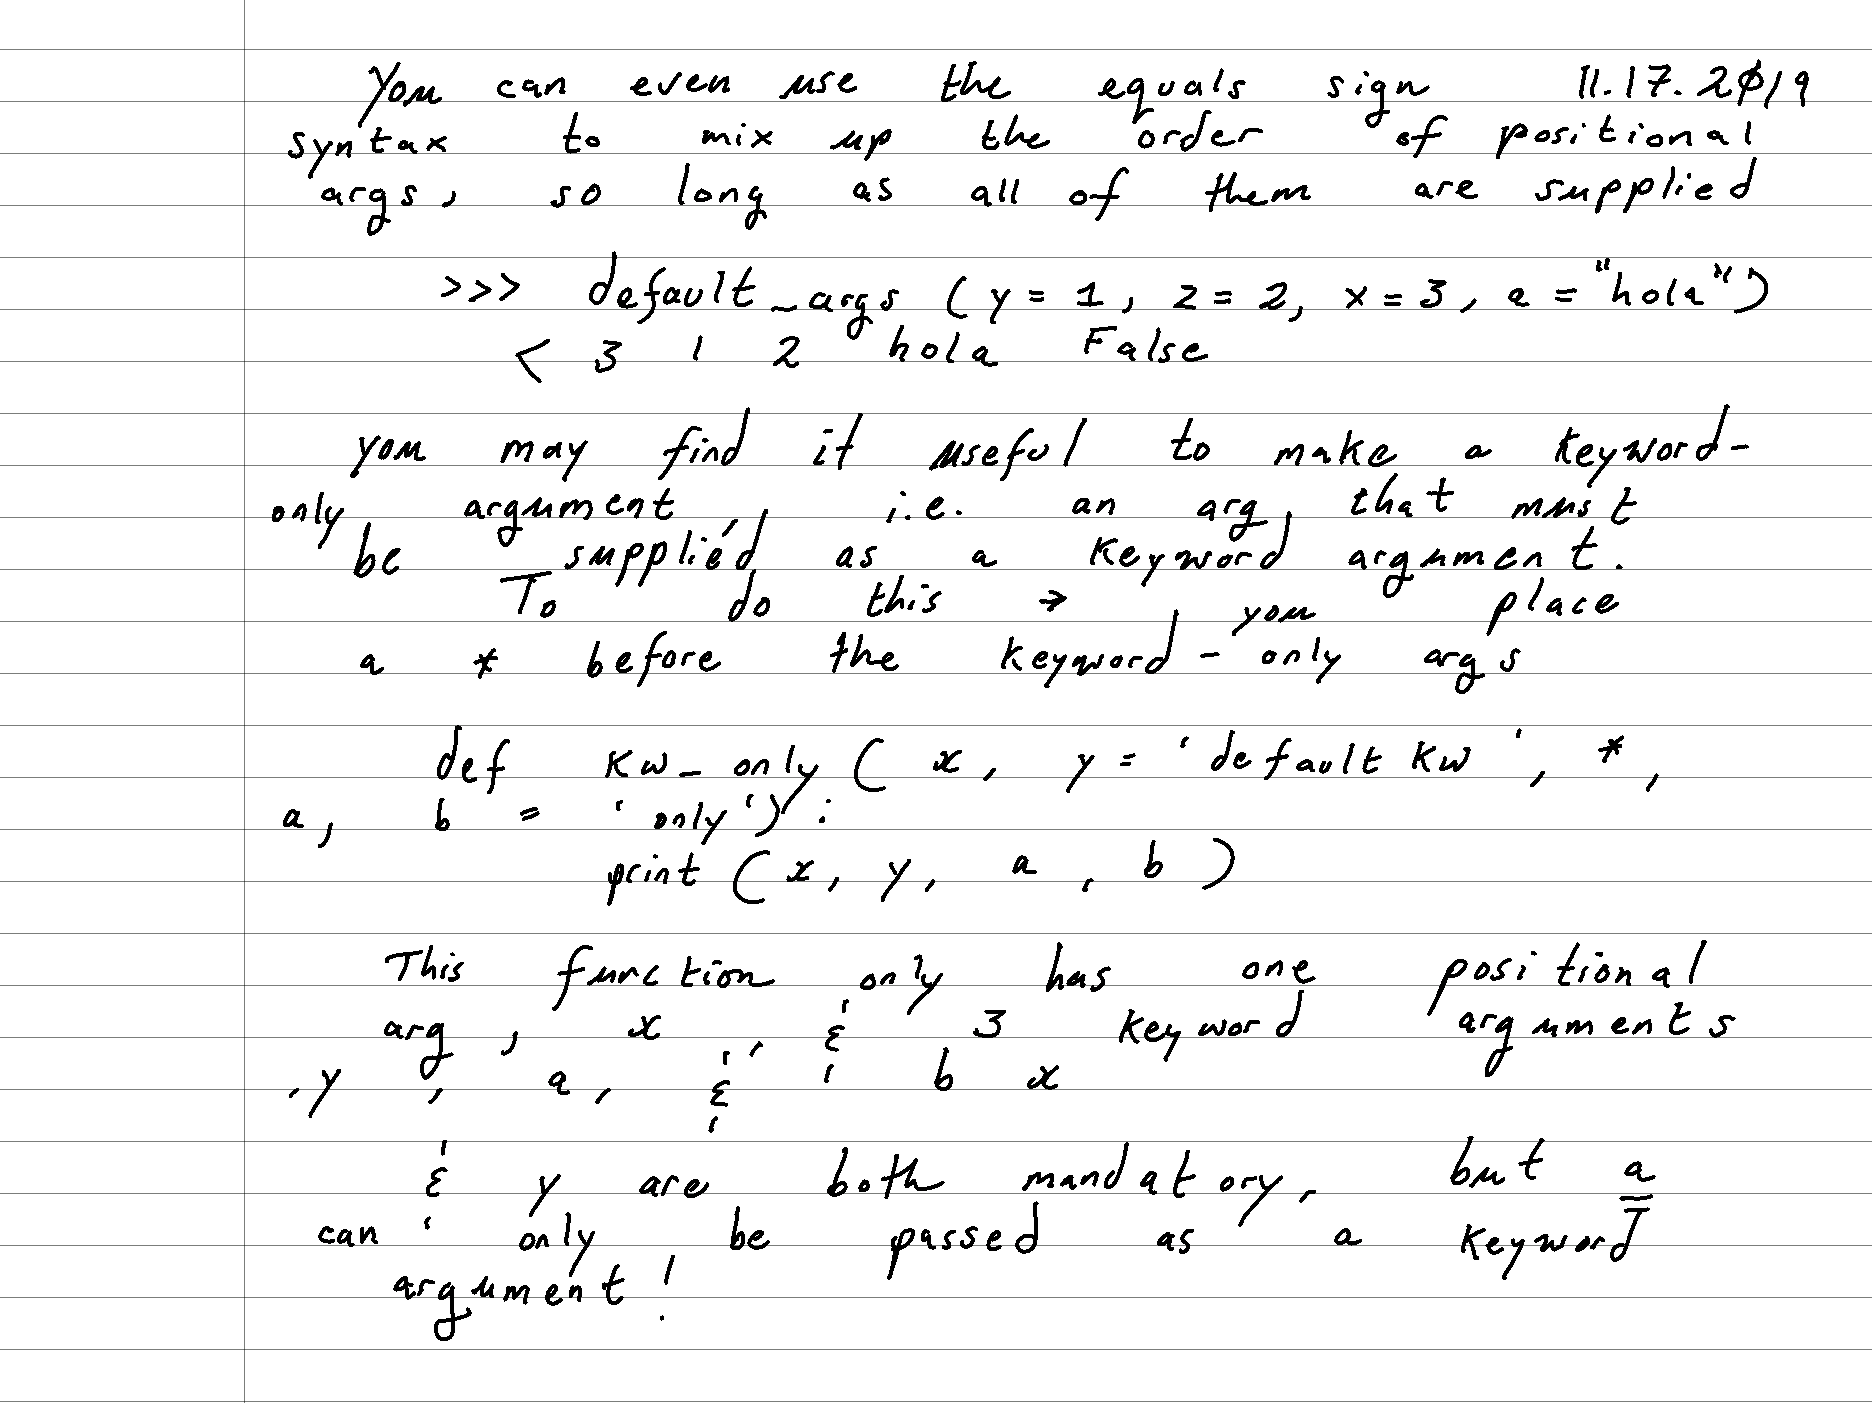 You can even use the equals sign 11.17.2019
syntax to mix up the order of positional
args, so long as all of them are supplied
>>> default_args (y = 1, z = 2, x = 3, a = "hola")
< 3 1 2 hola False
you may find it useful to make a keyword-
only argument, i.e. an arg, that must
be supplied as a keyword argument.
To do this → you place
a * before the keyword-only args
def kw_only (x, y = 'default kw', *,
a, b = 'only'):
print (x, y, a, b)
This function only has one positional
arg, x, & 3 keyword arguments
, y, a, & b x
& y are both mandatory, but a
can only be passed as a keyword
argument!